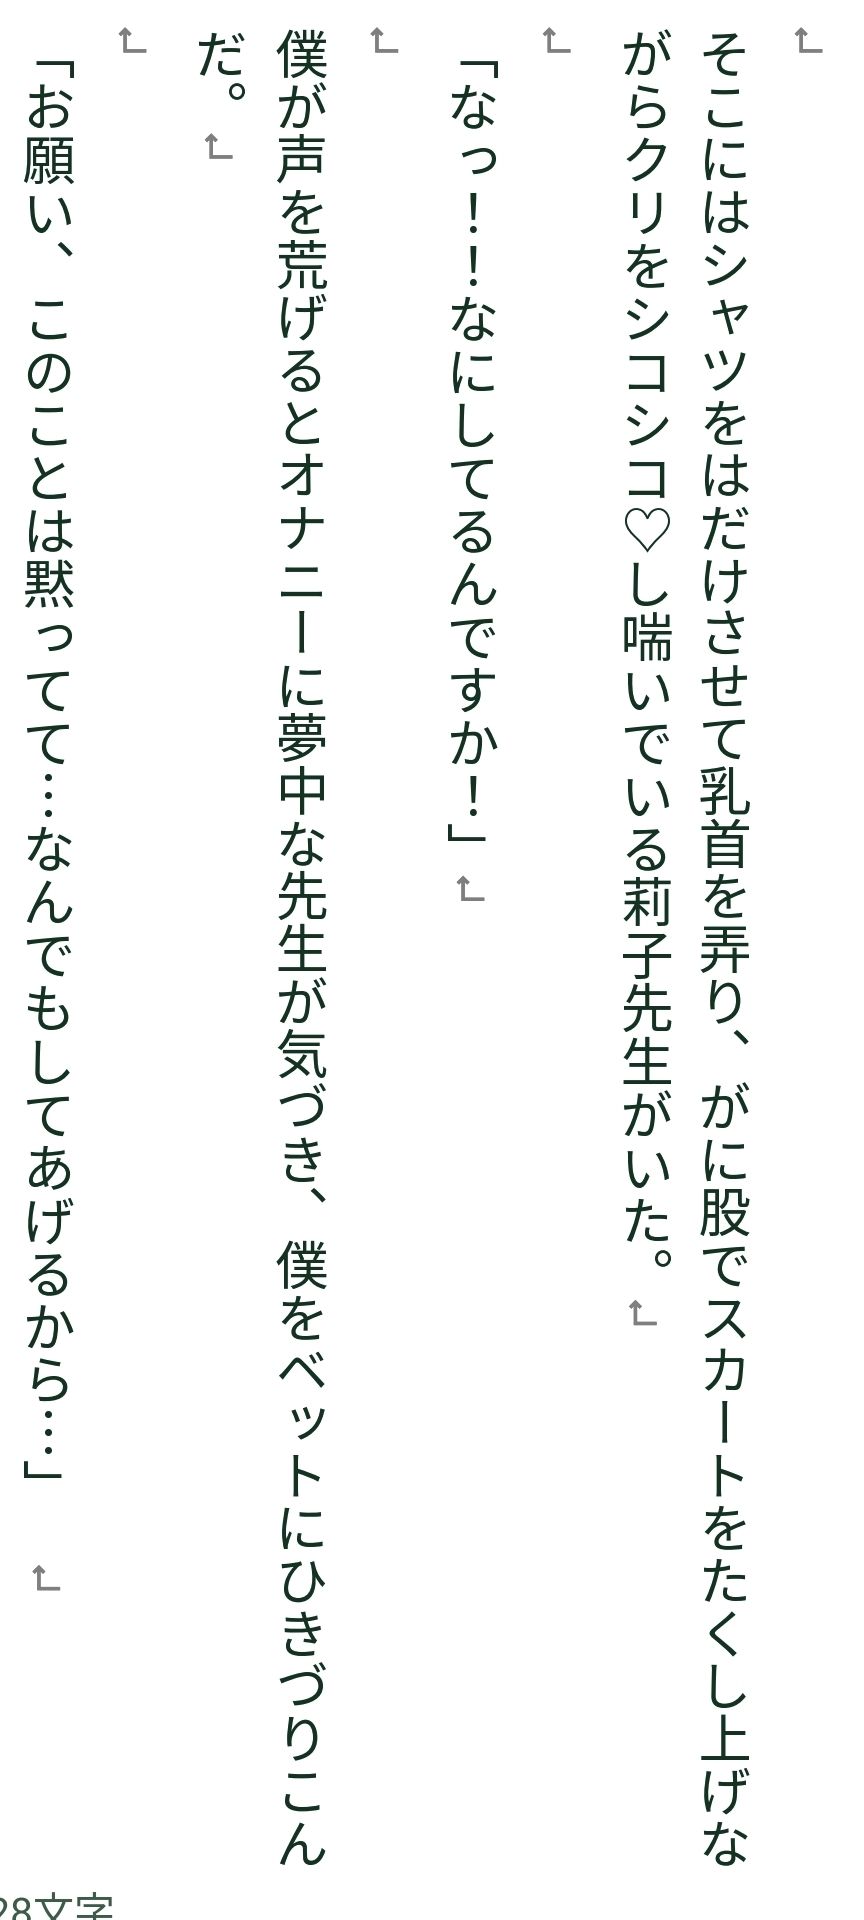 そこにはシャツをはだけさせて乳首を弄り、がに股でスカートをたくし上げな
がらクリをシコシコ♡し喘いでいる莉子先生がいた。
「なっ！！なにしてるんですか！」
僕が声を荒げるとオナニーに夢中な先生が気づき、僕をベットにひきづりこん
だ。
「お願い、このことは黙ってて…なんでもしてあげるから…」
28文字